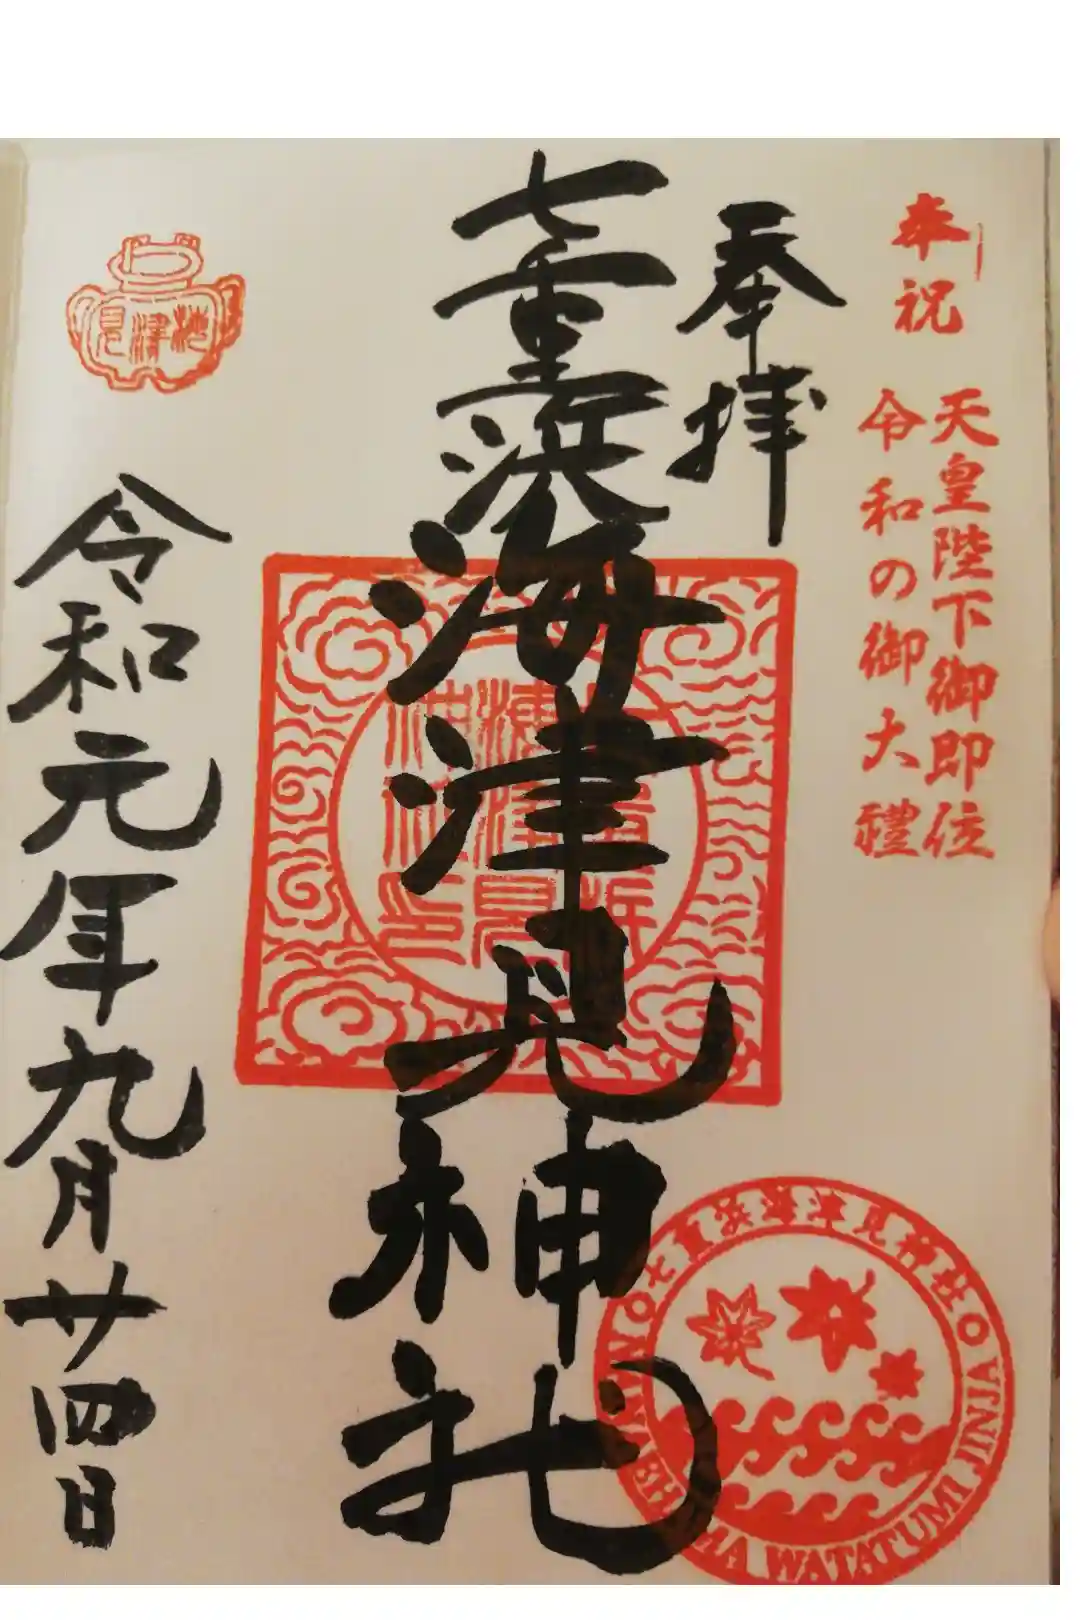 奉祝
天皇陛下御即位
令和の御大禮
奉拝
七重浜海津見神社
海津見
令和元年九月廿四日
七重浜海津見神社
WATATUMI JINJA